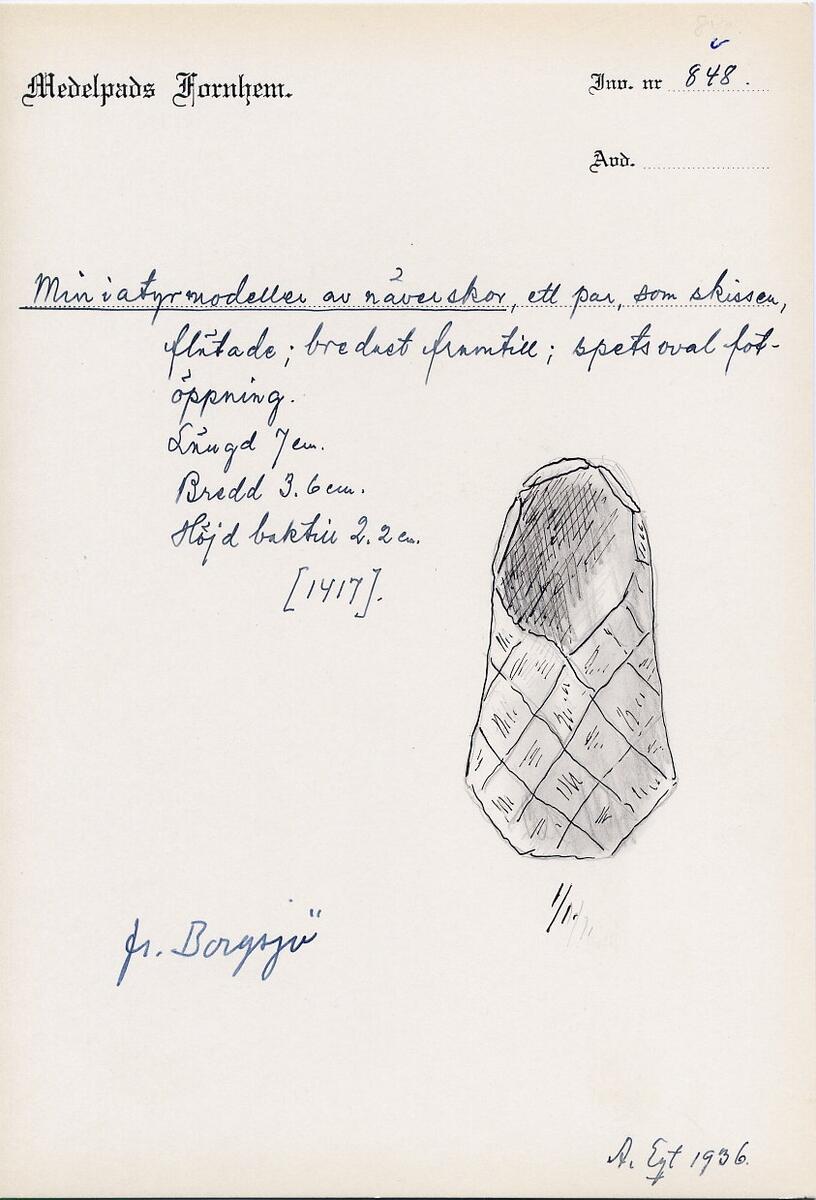 Medelpads Fornhem.
Inv. nr 848.
Avd.
Miniatyrmodeller av näverskor, ett par, som skissen,
flätade; bredast framtill; spetsoval fot-
öppning.
Längd 7 cm.
Bredd 3.6 cm.
Höjd baktill 2.2 cm.
[1417].
1/1
fr. Borgsjö
A. Egt 1936.